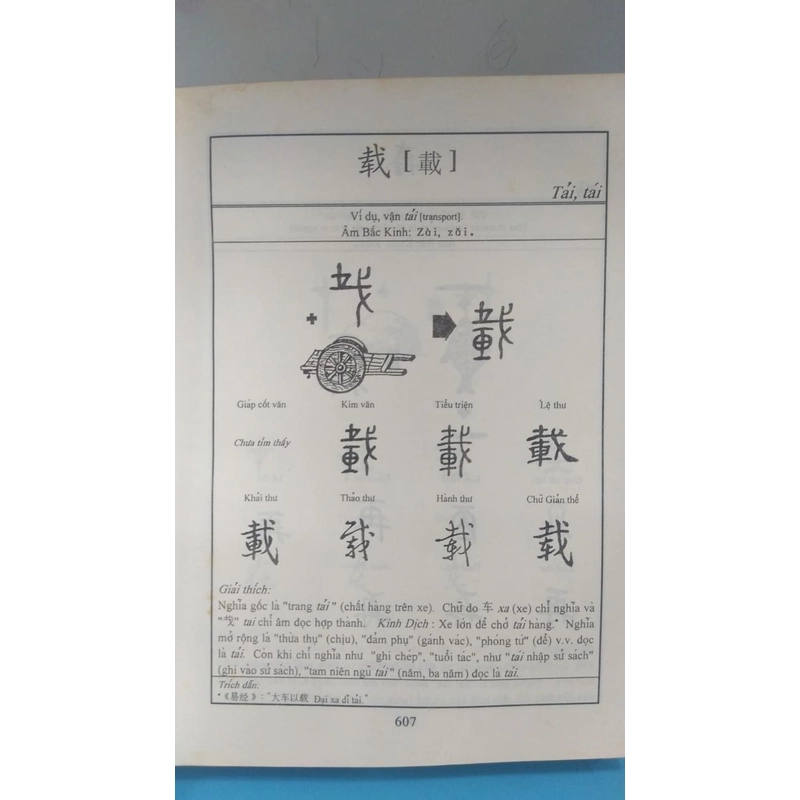 载 [ 載 ]
Tải, tái
Ví dụ, vận tải [transport].
Âm Bắc Kinh: Zài, zǎi.
Giáp cốt văn Kim văn Tiểu triện Lệ thư
Chưa tìm thấy 載 載 載
Khải thư Thảo thư Hành thư Chữ Giản thể
載 载 载 载
Giải thích:
Nghĩa gốc là "trang tải" (chất hàng trên xe). Chữ do 车 xa (xe) chỉ nghĩa và
tai chỉ âm đọc hợp thành. Kinh Dịch : Xe lớn để chở tải hàng.* Nghĩa
mở rộng là "thừa thụ" (chịu), "đảm phụ" (gánh vác), "phóng tứ" (để) v.v. đọc
là tải. Còn khi chỉ nghĩa như "ghi chép", "tuổi tác", như "tái nhập sử sách"
(ghi vào sử sách), "tam niên ngũ tái" (năm, ba năm) đọc là tái.
Trích dẫn:
*《易经》: "大车以载 Đại xa dĩ tải."
607